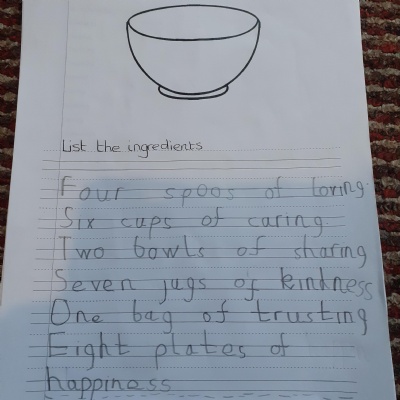 List the ingredients
Four spoos of loving.
Six cups of caring.
Two bowls of sharing
Seven jugs of kindness
One bag of trusting
Eight plates of
happiness